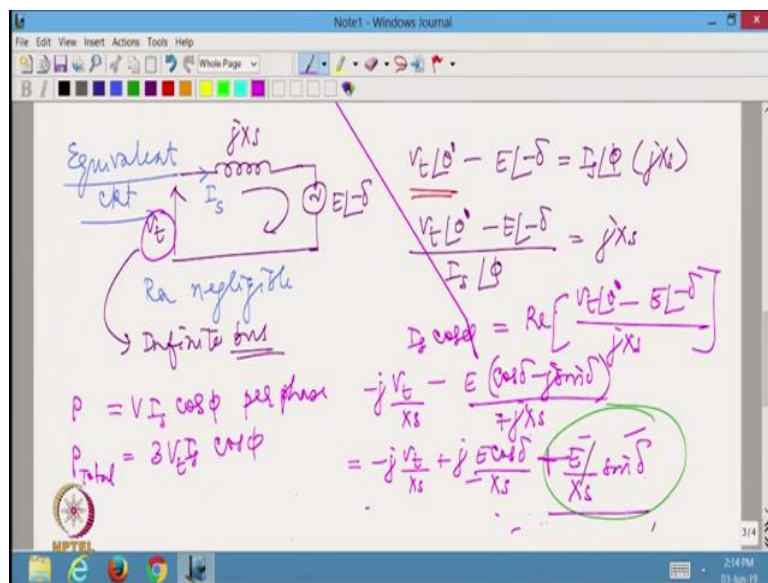 Note1 - Windows Journal
File Edit View Insert Actions Tools Help
Whole Page
B I
Equivalent
ckt
jXs
Is
E∠-δ
Vt
Ra negligible
→ Infinite bus
P = V Is cosϕ per phase
P Total = 3 Vt Is cosϕ
Vt∠0° - E∠-δ = Is∠ϕ (jXs)
Vt∠0° - E∠-δ / Is∠ϕ = jXs
Is cosϕ = Re[Vt∠0° - E∠-δ / jXs]
-j Vt/Xs - E (cosδ - j sinδ) / +jXs
= -j Vt/Xs + j E cosδ/Xs + E/Xs sinδ
NPTEL
3/4
2:14 PM
03-Jun-19